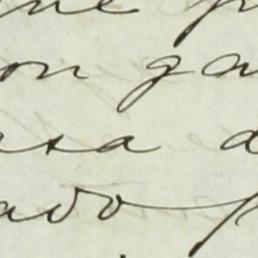 ue p
on ga
asa d
ado p